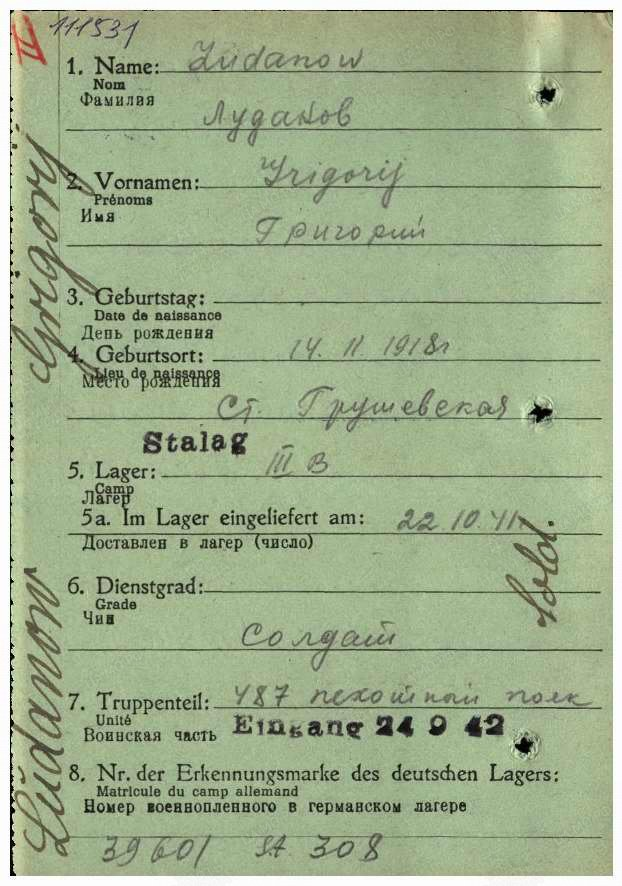 II 111531
1. Name: Ludanow
Nom
Фамилия
Лударов
2. Vornamen: Grigorij
Prénoms
Имя
Григорий
3. Geburtstag:
Date de naissance
День рождения
4. Geburtsort: 14. II 1918г
Lieu de naissance
Место рождения
Ст. Грушевская
Stalag
5. Lager: III B
Camp
Лагер
5a. Im Lager eingeliefert am: 22.10.41г.
Доставлен в лагер (число)
6. Dienstgrad:
Grade
Чин
Солдат
Sold.
7. Truppenteil: 487 пехотный полк
Unité
Воинская часть Eingang 24 9 42
8. Nr. der Erkennungsmarke des deutschen Lagers:
Matricule du camp allemand
Номер военнопленного в германском лагере
39601 St. 308
Ludanow Grigorij